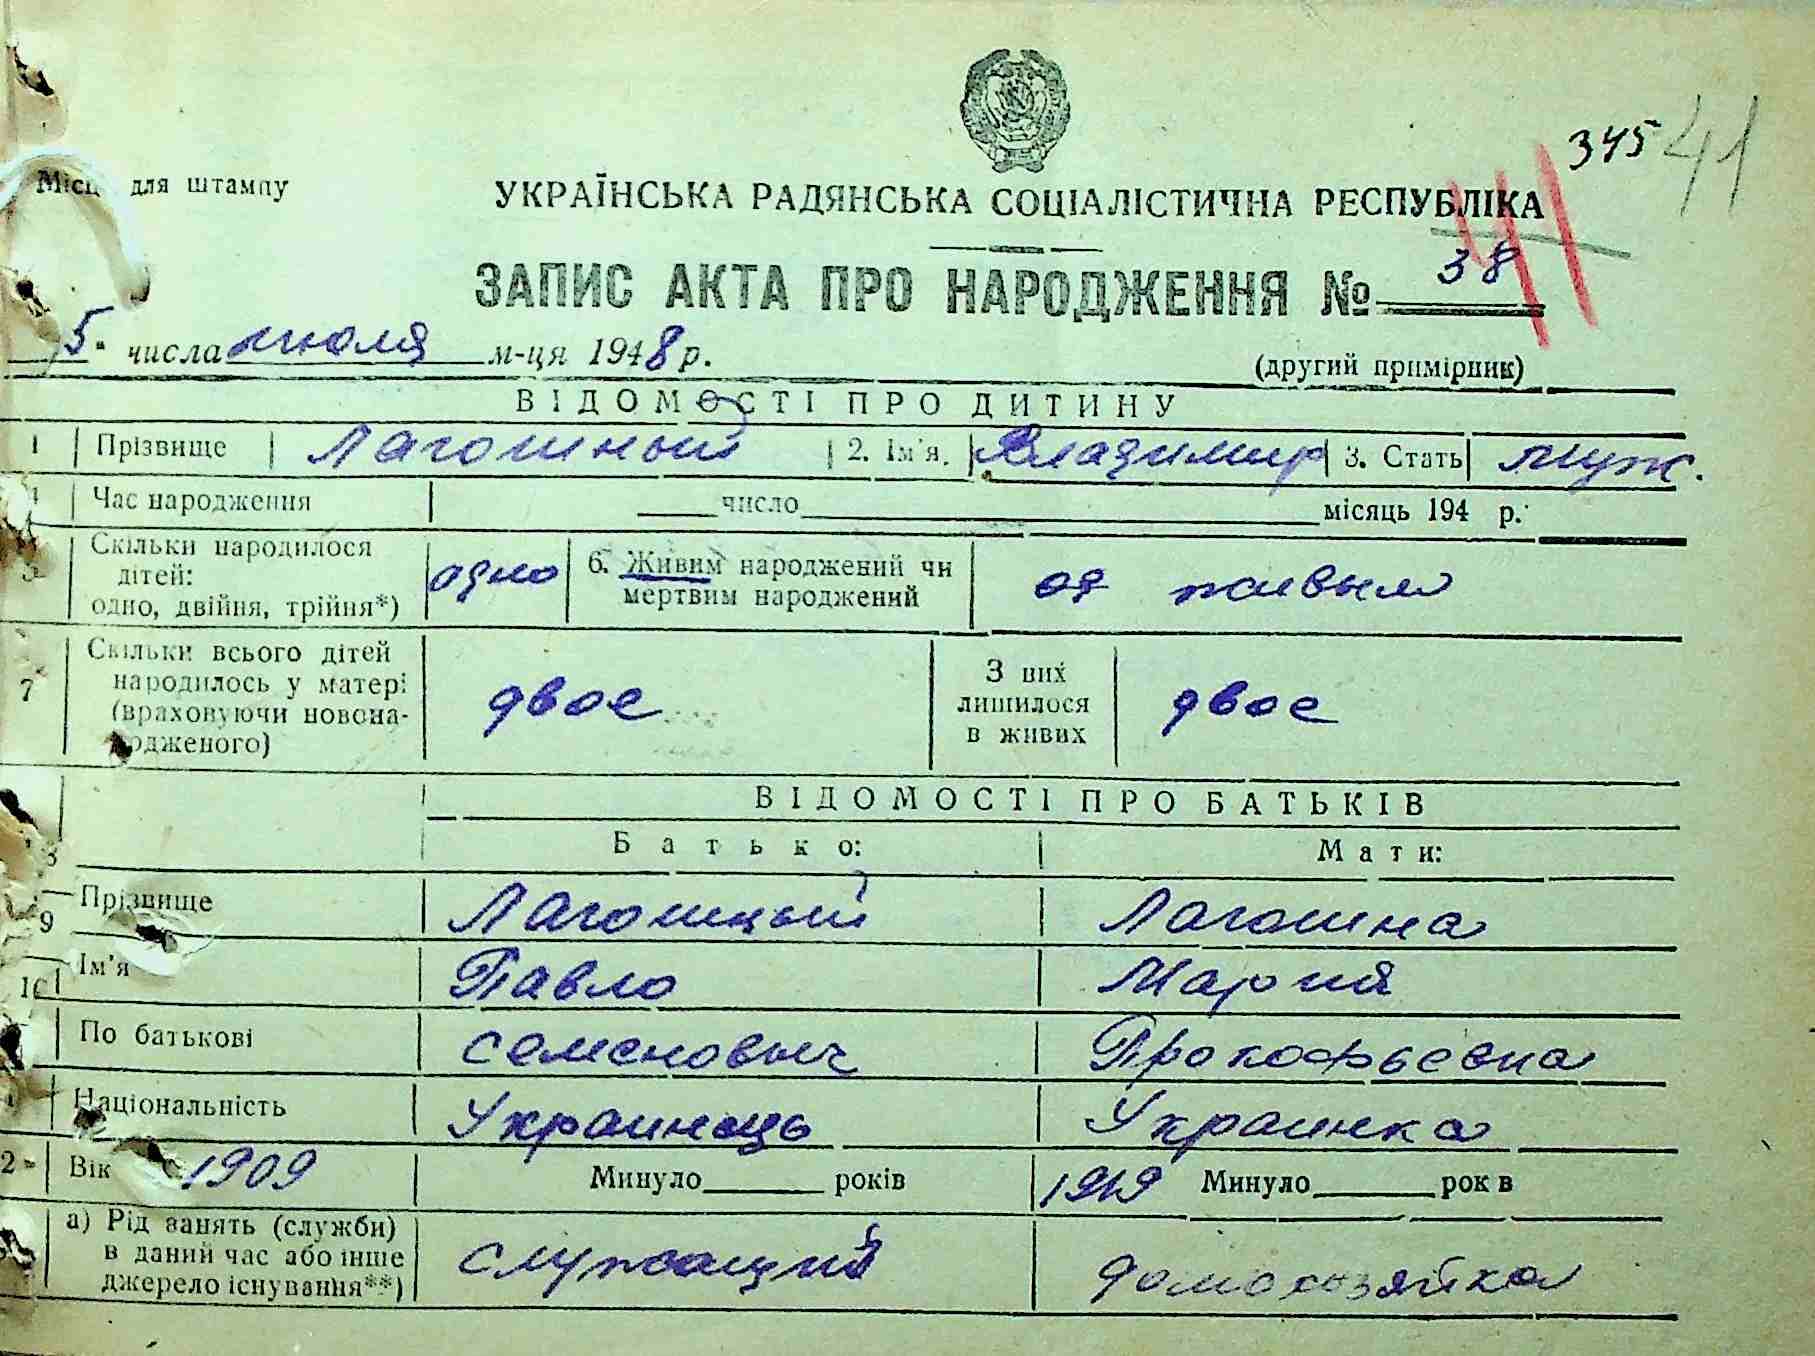 345 41
Місц для штампу
УКРАЇНСЬКА РАДЯНСЬКА СОЦІАЛІСТИЧНА РЕСПУБЛІКА
41
ЗАПИС АКТА ПРО НАРОДЖЕННЯ № 38
5" числа июля м-ця 1948 р.
(другий примірник)
ВІДОМОСТІ ПРО ДИТИНУ
1 Прізвище Лагошный 2. Ім'я. Владимир 3. Стать муж.
Час народження число місяць 194 р.
Скільки народилося
дітей:
одно, двійня, трійня*)
одно
6. Живим народжений чи
мертвим народжений
живым
7 Скільки всього дітей
народилось у матері
(враховуючи новона-
родженого)
двое
З них
лишилося
в живих
двое
ВІДОМОСТІ ПРО БАТЬКІВ
8 Батько: Мати:
9 Прізвище Лагошный Лагошна
10 Ім'я Павло Мария
По батькові Семеновыч Прокофьевна
Національність Украинець Украинка
Вік 1909 Минуло років 1919 Минуло рок в
а) Рід занять (служби)
в даний час або інше
джерело існування**)
служащий домохозяйка